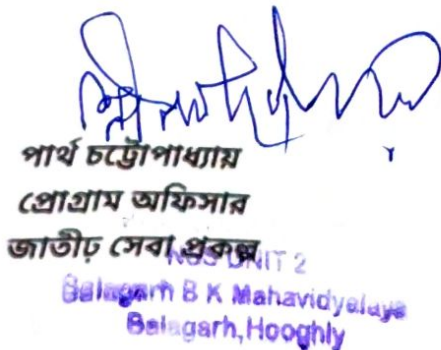 পার্থ চট্টোপাধ্যায়
প্রোগ্রাম অফিসার
জাতীঢ় সেবা প্রকল্প
NSS UNIT 2
Balagarh B K Mahavidyalaya
Balagarh, Hooghly